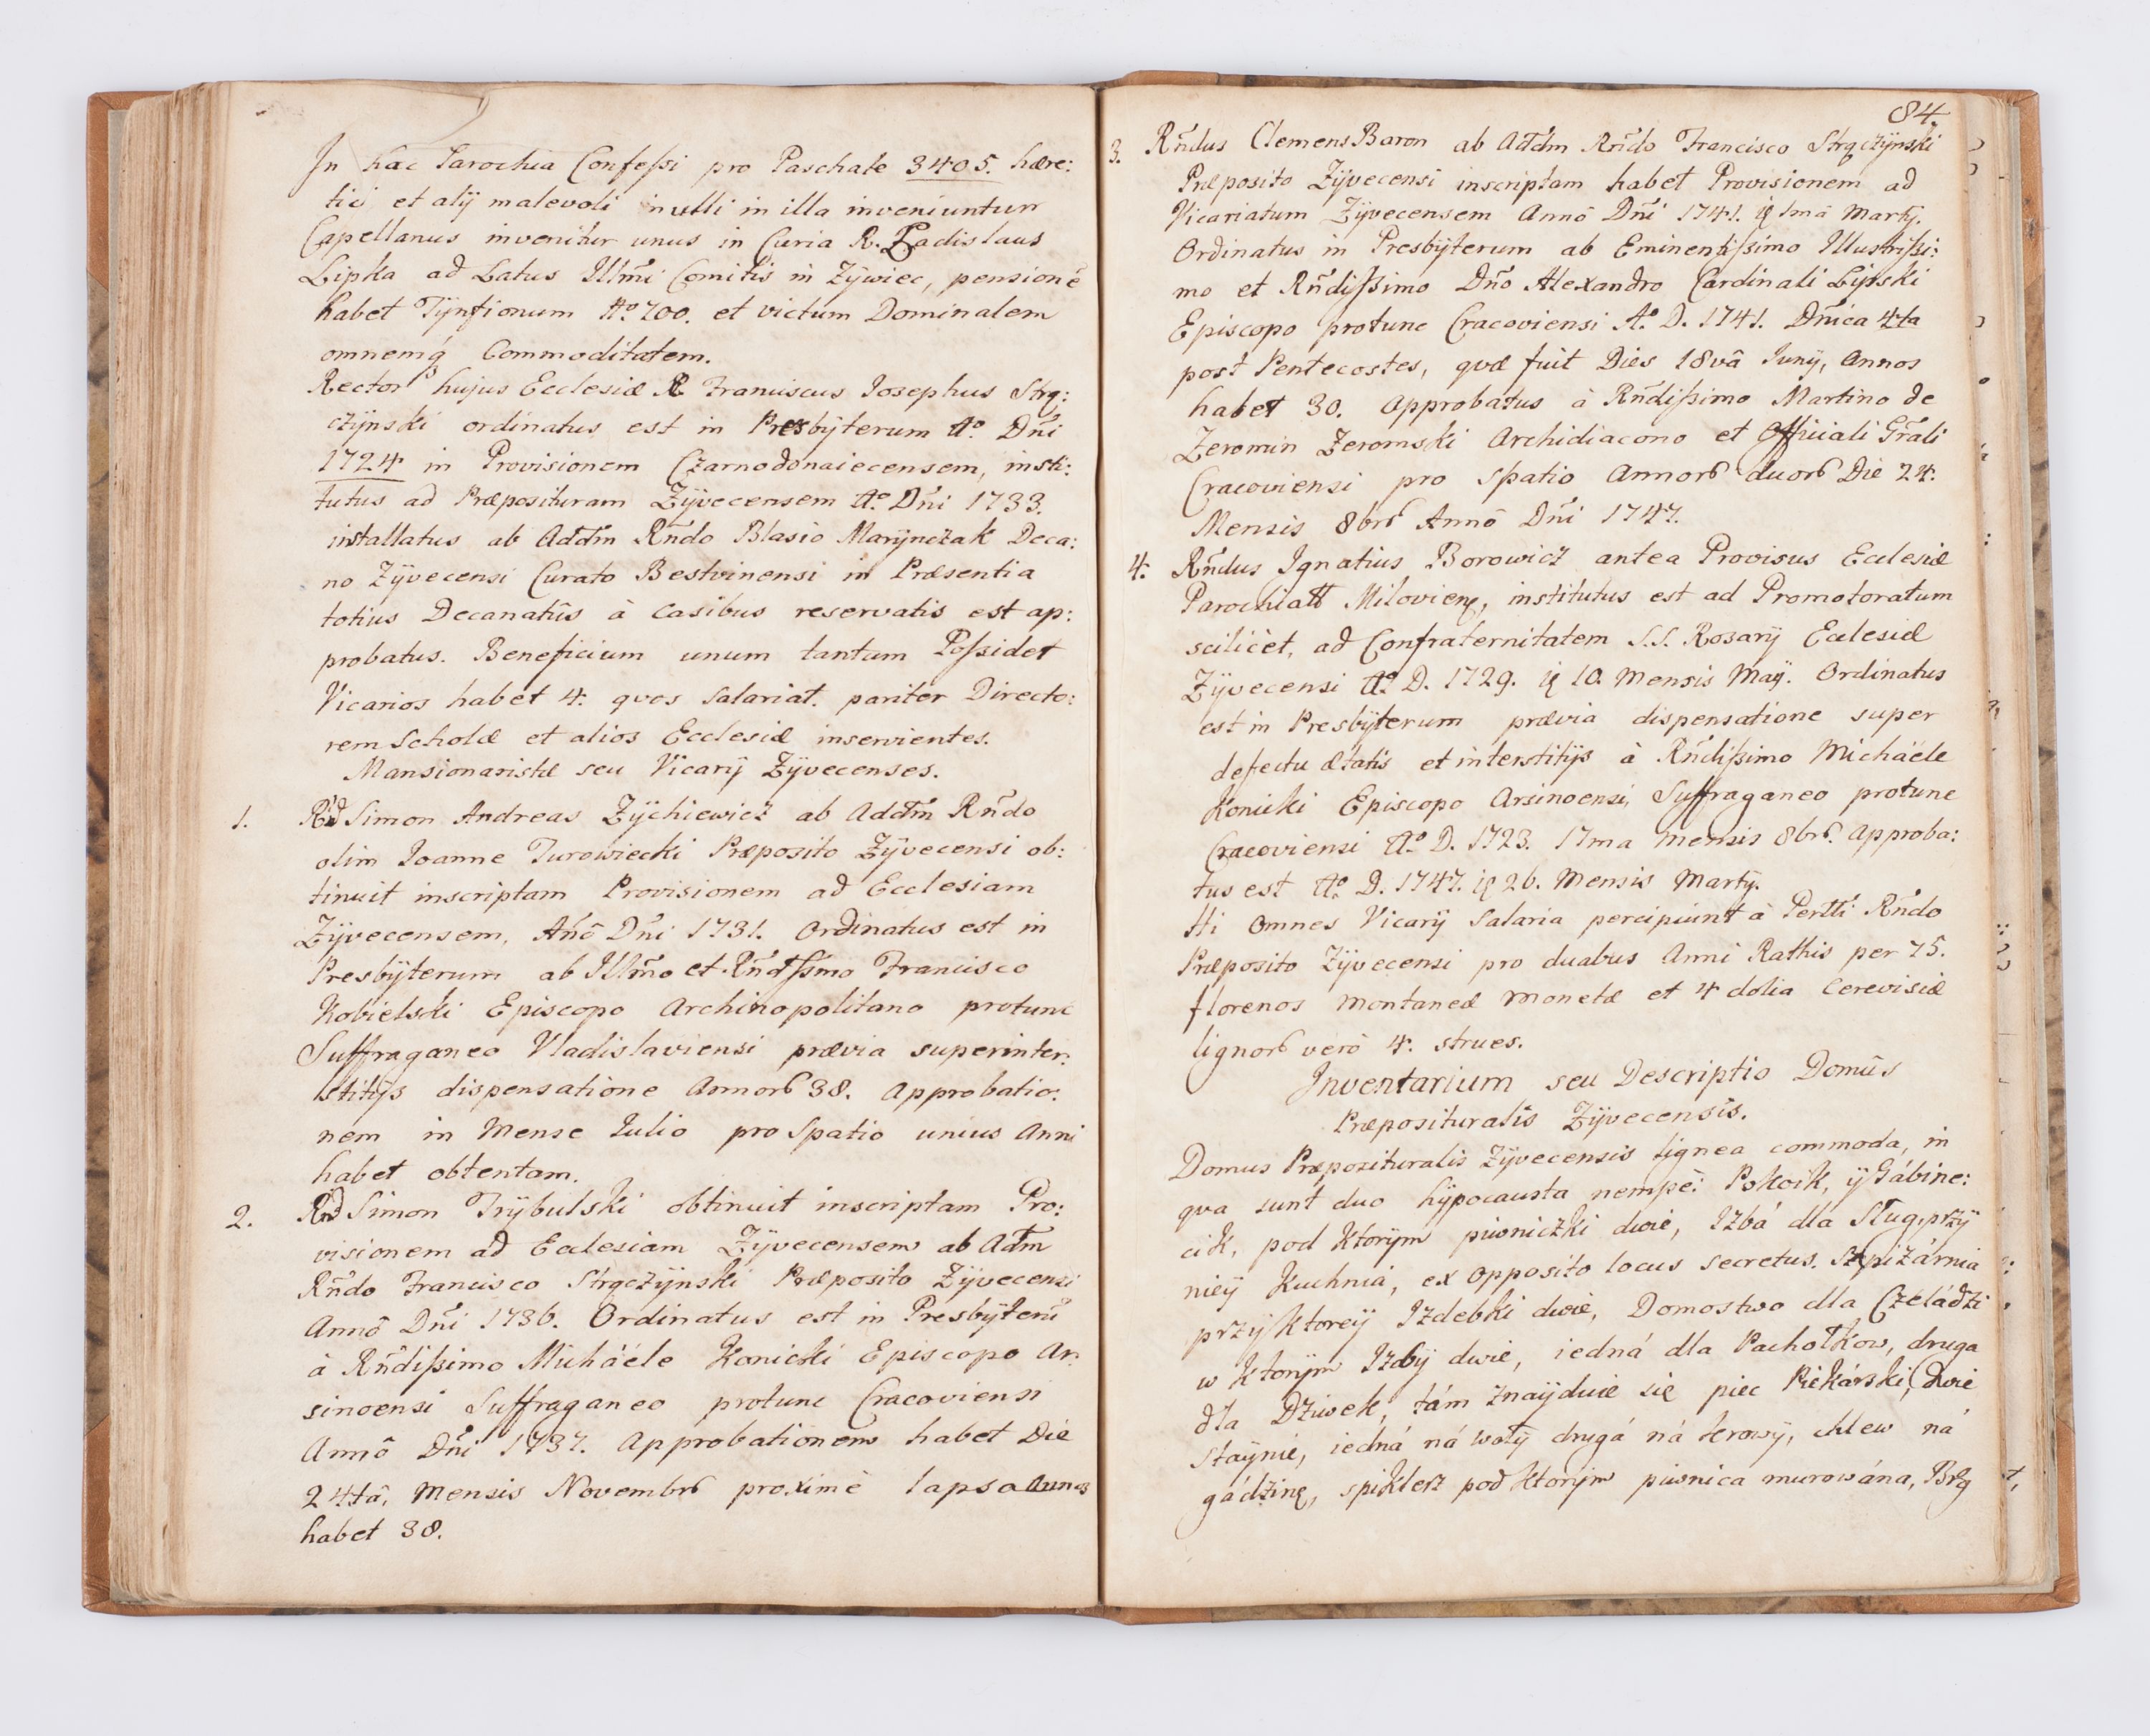 In hac Parochia Confeſsi pro Paschate 3405. hære:
tici et alÿ malevoli nulli in illa inveniuntur
Capellanus invenitur unus in Curia R. Ladislaus
Lipka ad Latus Illm̃i Comitis in Zÿwiec, pensionē
habet Tÿnfionum No 700. et victum Dominalem
omnemq́ Commoditatem.
Rector hujus Ecclesiæ R Franciscus Iosephus Strą:
czÿnski ordinatus est in Presbÿterum Ao. Dn̄i
1724 in Provisionem Czarnodonaiecensem, insti:
tutus ad Præposituram Zÿvecensem Ao. Dn̄i 1733.
installatus ab Adm̄ Rn̄do Blasio Marÿnczak Deca:
no Zÿvecensi Curato Bestvinensi in Præsentia
totius Decanatûs à Casibus reservatis est ap:
probatus. Beneficium unum tantum Poſsidet
Vicarios habet 4. quos salariat. pariter Directo:
rem Scholæ et alios Ecclesiæ inservientes.
Mansionaristæ seu Vicarÿ Zÿvecenses.
1. Rñd Simon Andreas Zÿchiewicz ab Adm̄ Rn̄do
olim Ioanne Turowiecki Præposito Zÿvecensi ob:
tinuit inscriptam Provisionem ad Ecclesiam
Zÿvecensem, An̄ô Dn̄i 1731. Ordinatus est in
Presbÿterum ab Illm̃o et Rn̄dſsmo Francisco
Kobielski Episcopo Archinopolitano protunc
Suffraganeo Vladislaviensi prævia superinter:
stitÿs dispensatione Annorꝸ 38. Approbatio:
nem in Mense Iulio pro Spatio unius Anni
habet obtentam.
2. Rñd Simon Trÿbulski obtinuit inscriptam Pro:
visionem ad Ecclesiam Zÿvecensem ab Adm̄
Rn̄do Francisco Strączÿnski Præposito Zÿvecensi
Annô Dn̄i 1736. Ordinatus est in Presbÿterū
à Rn̄diſsimo Michaële Konicki Episcopo Ar:
sinoensi Suffraganeo protunc Cracoviensi
Annô Dn̄i 1737. Approbationem habet Die
24tâ, Mensis Novembrꝸ proximè lapso Annos
habet 38.
84.
3. Rn̄dus Clemens Baron ab Adm̄ Rn̄do Francisco Strączÿnski
Præposito Zÿvecensi inscriptam habet Provisionem ad
Vicariatum Zÿvecensem Annô Dn̄i 1741. 1mâ Martÿ.
Ordinatus in Presbÿterum ab Eminentiſsimo Illustriſsi:
mo et Rn̄diſsimo Dn̄o Alexandro Cardinali Lipski
Episcopo protunc Cracoviensi Ao. D. 1741. Dn̄ica 4ta
post Pentecostes, quæ fuit Dies 18vâ Iunÿ, Annos
habet 30. Approbatus à Rn̄diſsimo Martino de
Zeromin Zeromski Archidiacono et Officiali Grāli
Cracoviensi pro Spatio Annorꝸ duorꝸ Die 24.
Mensis 8brꝸ Annô Dn̄i 1747.
4. Rn̄dus Ignatius Borowicz antea Provisus Ecclesiæ
Parochialis Miloviens, institutus est ad Promotoratum
scilicèt, ad Confraternitatem S.S. Rosarÿ Ecclesiæ
Zÿvecensi Ao. D. 1729. 10. Mensis Maÿ. Ordinatus
est in Presbÿterum prævia dispensatione super
defectu ætatis et interstitÿs à Rn̄diſsimo Michaële
Konicki Episcopo Arsinoensi, Suffraganeo protunc
Cracoviensi Ao. D. 1723. 17ma Mensis 8brꝸ. Approba:
tus est Ao. D. 1747. 26. Mensis Martÿ.
Hi Omnes Vicarÿ Salaria percipiunt à Rn̄do
Præposito Zÿvecensi pro duabus Anni Rathis per 75.
florenos montaneæ monetæ et 4 dolia Cerevisiæ
lignorꝸ verò 4. strues.
Inventarium seu Descriptio Domûs
Præposituralis Zÿvecensis.
Domus Præposituralis Zÿvecensis lignea commoda, in
qva sunt duo hÿpocausta nempè: Pokoik, ÿ Gábine:
cik, pod ktorÿm piwniczki dwie, Izbá dla Sług, przÿ
nieÿ Kuchniá, ex opposito locus secretus. Szpizárnia
przÿ ktoreÿ Izdebki dwie, Domostwo dla Czeládzi
w ktorÿm Izbÿ dwie, iedná dla Pachołkow, druga
dla Dziwek, tám znaÿduie się piec Piekárski, Dwie
Staÿnie, iedná ná wołÿ drugá ná krowÿ, chlew ná
gádzinę, spiklerz pod ktorÿm piwnica murowána, Brg